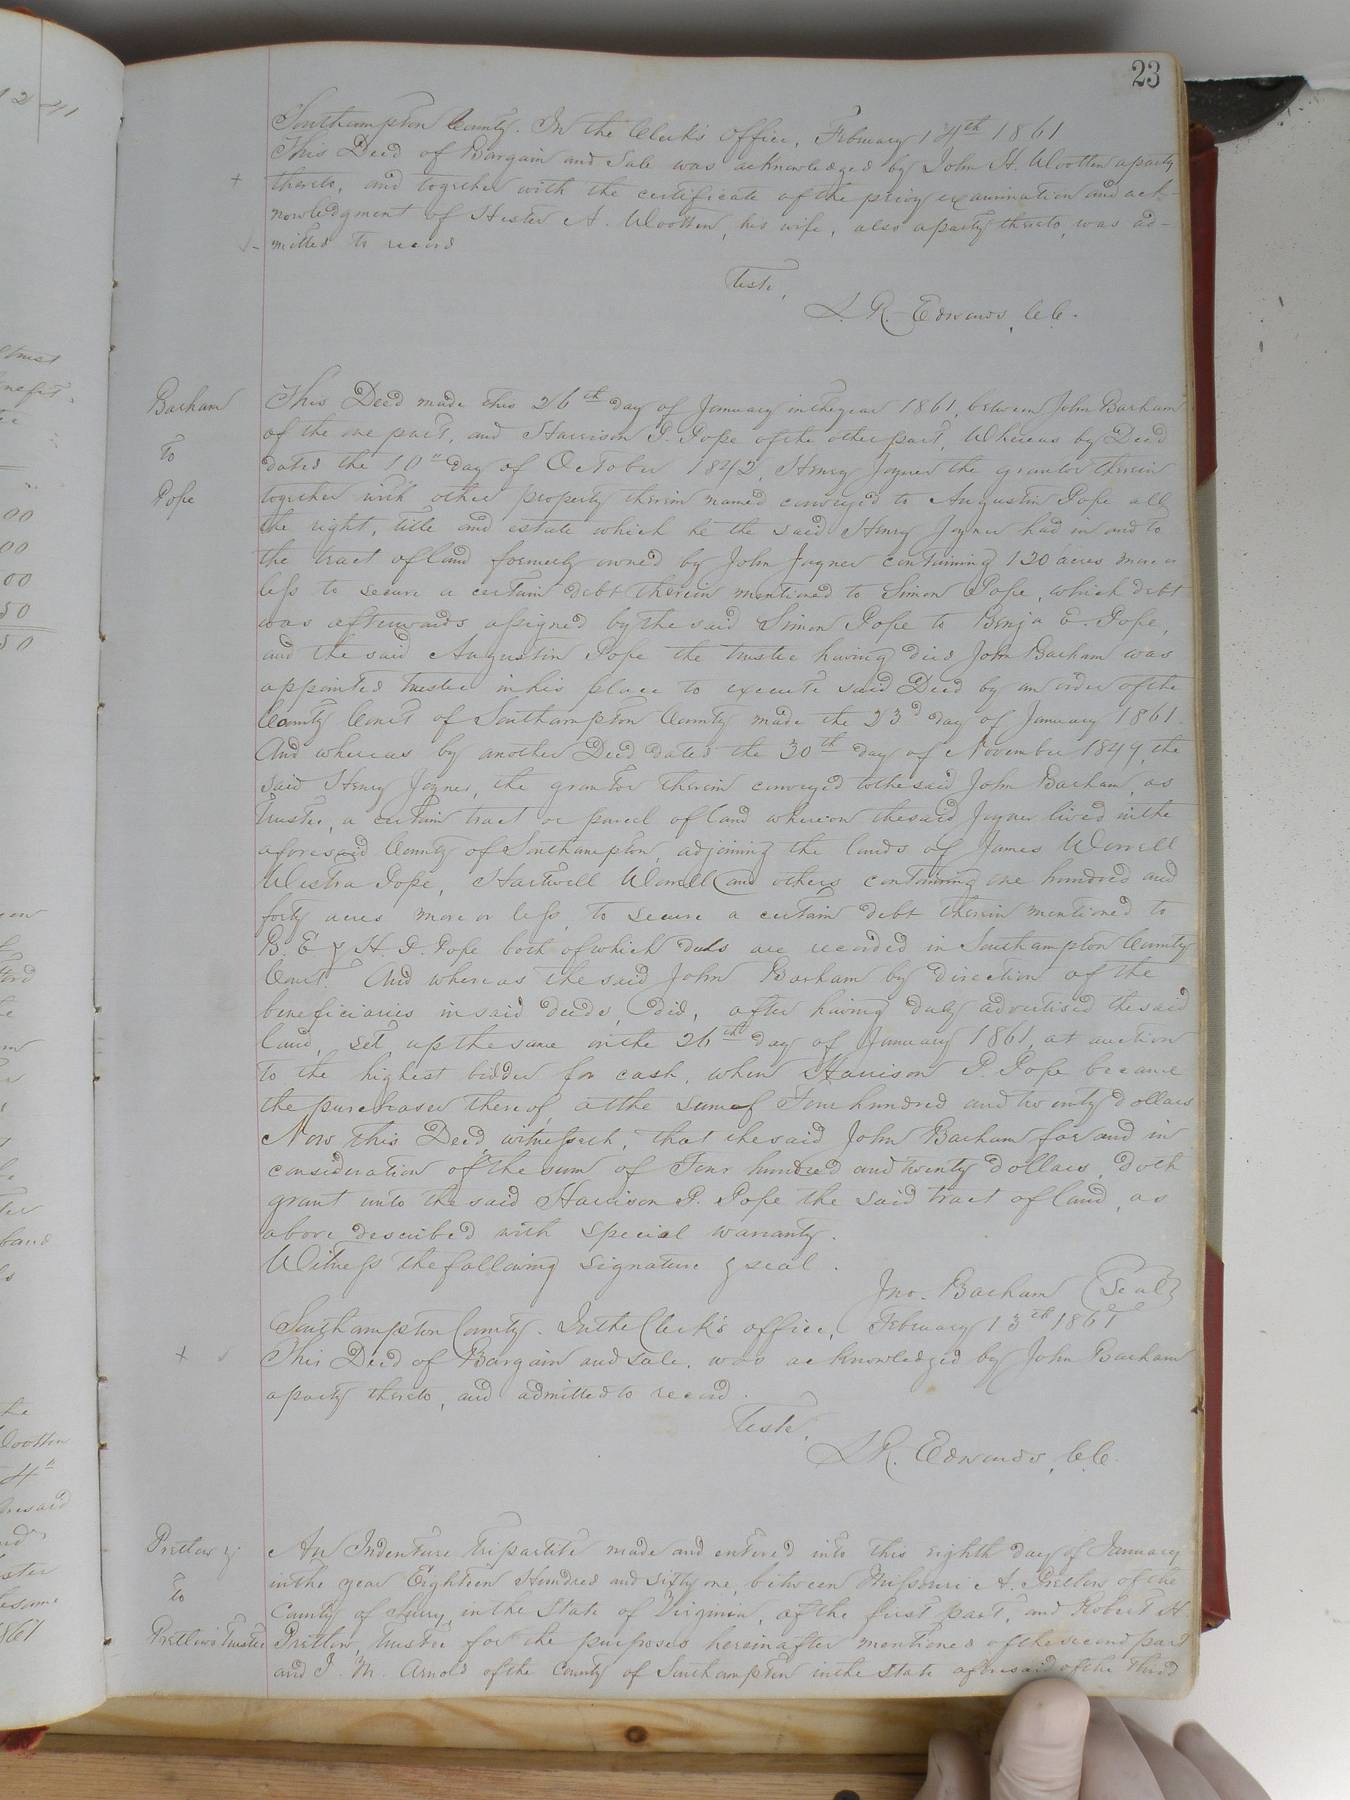 23
Southampton County. In the Clerk's office, February 14th 1861
This Deed of Bargain and Sale was acknowledged by John H. Wootten a party
thereto, and together with the certificate of the privy examination and ack-
nowledgment of Hester A. Wootten, his wife, also a party thereto, was ad-
mitted to record
Teste,
L. R. Edwards, C.C.
Barham
To
Pope
This Deed made this 26th day of January in the year 1861, between John Barham
of the one part, and Harrison P. Pope of the other part, Whereas by Deed
dated the 10" day of October 1842, Henry Joyner the grantor therein
together with other property therein named conveyed to Augustin Pope all
the right, title and estate which he the said Henry Joyner had in and to
the tract of land formerly owned by John Joyner containing 120 acres more or
less to secure a certain debt therein mentioned to Simon Pope, which debt
was afterwards assigned by the said Simon Pope to Benja E. Pope,
and the said Augustin Pope the trustee having died John Barham was
appointed trustee in his place to execute said Deed by an order of the
County Court of Southampton County made the 23d day of January 1861.
And whereas by another Deed dated the 30th day of November 1849, the
said Henry Joyner, the grantor therein conveyed to the said John Barham, as
trustee, a certain tract or parcel of land whereon the said Joyner lived in the
aforesaid County of Southampton, adjoining the lands of James Worrell
Westra Pope, Hartwell Worrell and others containing one hundred and
forty acres more or less, to secure a certain debt therein mentioned to
B. E & H. P. Pope both of which deeds are recorded in Southampton County
Court. And whereas the said John Barham by direction of the
beneficiaries in said deeds, did, after having duly advertised the said
land, set up the same on the 26th day of January 1861, at auction
to the highest bidder for cash, when Harrison P. Pope became
the purchaser thereof, at the sum of Four hundred and twenty dollars
Now this Deed witnesseth, that the said John Barham for and in
consideration of the sum of Four hundred and twenty dollars, doth
grant unto the said Harrison P. Pope the said tract of land, as
above described with special warranty.
Witness the following signature & seal.
Jno. Barham (Seal)
Southampton County. In the Clerk's office, February 13th 1861
This Deed of Bargain and Sale, was acknowledged by John Barham
a party thereto, and admitted to record.
Teste,
L R. Edwards, C.C.
Pretlow &
To
Pretlow's Trustee
An Indenture tripartite made and entered into this eighth day of January
in the year Eighteen Hundred and sixty one, between Missouri A. Pretlow of the
County of Surry, in the State of Virginia, of the first part, and Robert H
Pretlow, trustee for the purposes hereinafter mentioned of the second part
and J. M. Arnold of the County of Southampton in the State aforesaid of the third